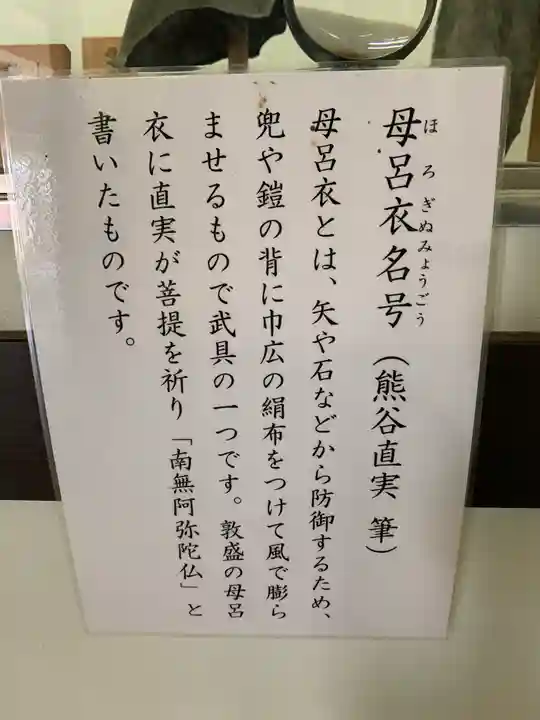 母呂衣名号(熊谷直実 筆)
ほろぎぬみょうごう
母呂衣とは、矢や石などから防御するため、
兜や鎧の背に巾広の絹布をつけて風で膨ら
ませるもので武具の一つです。敦盛の母呂
衣に直実が菩提を祈り「南無阿弥陀仏」と
書いたものです。